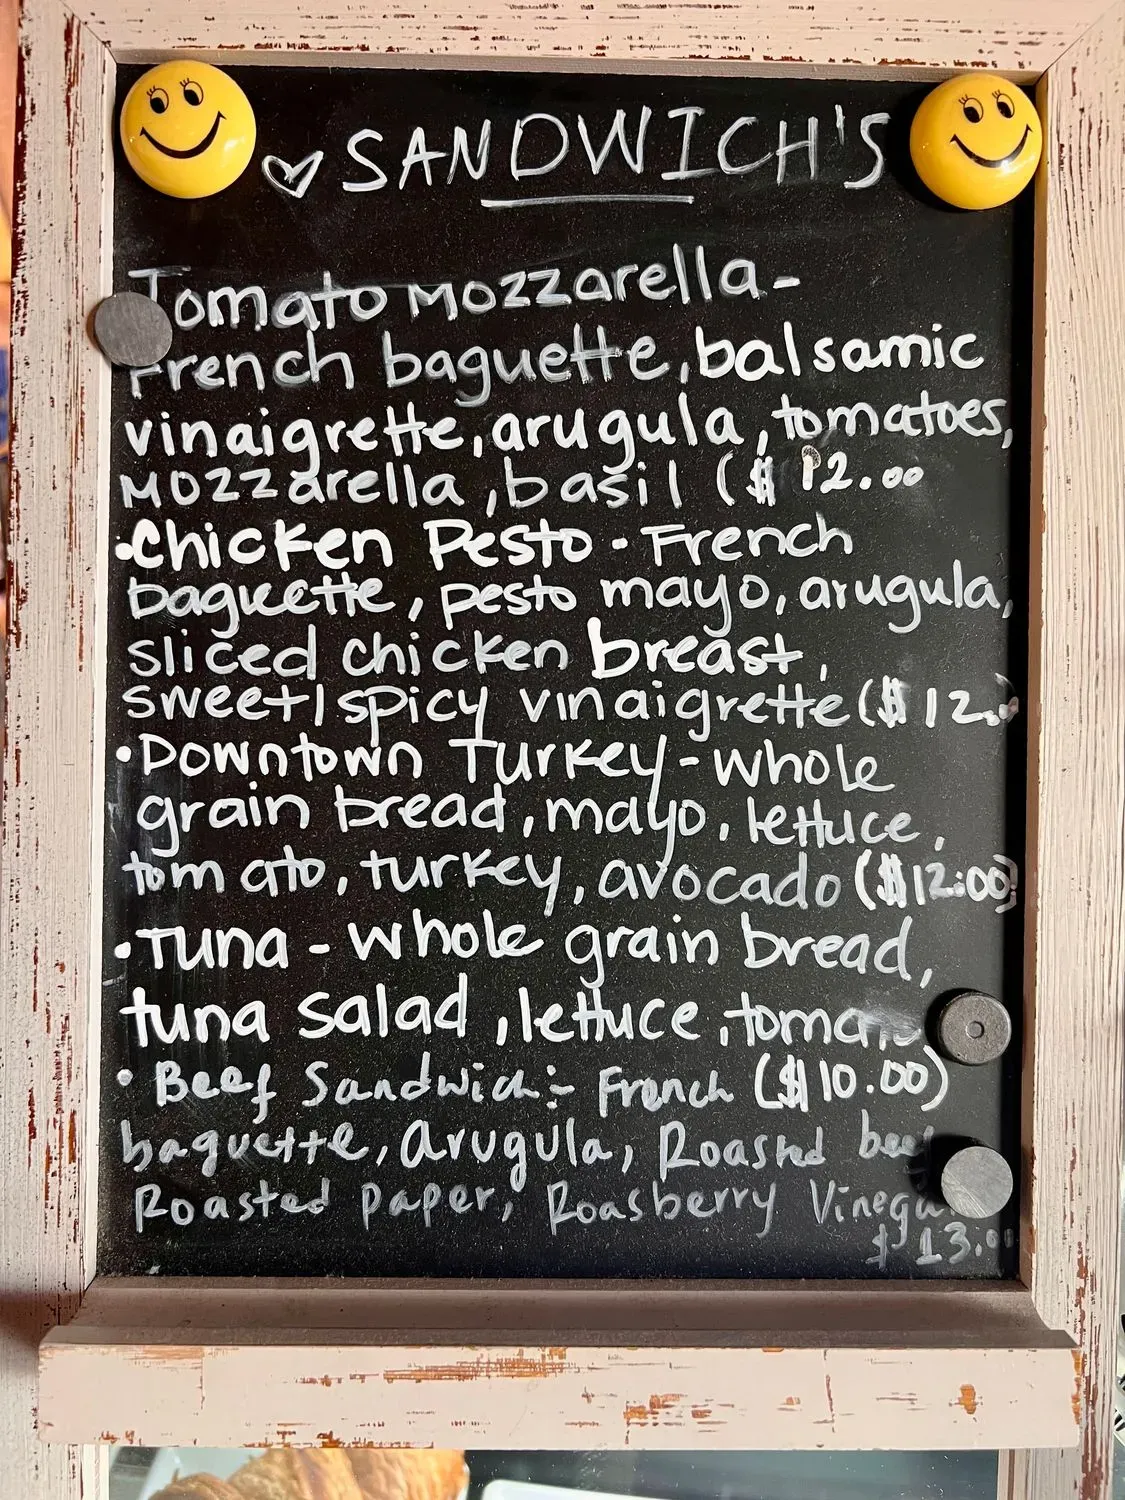 SANDWICH'S
Tomato Mozzarella-
French baguette, balsamic
vinaigrette, arugula, tomatoes,
Mozzarella, basil ($12.00
•Chicken Pesto - French
baguette, pesto mayo, arugula,
sliced chicken breast,
sweet/spicy vinaigrette ($12.
•Downtown Turkey - whole
grain bread, mayo, lettuce,
tomato, turkey, avocado ($12:00)
•Tuna - whole grain bread,
tuna salad, lettuce, toma
• Beef Sandwich:- French ($10.00)
baguette, Arugula, Roasted beef
Roasted paper, Roasberry Vinega
$13.00